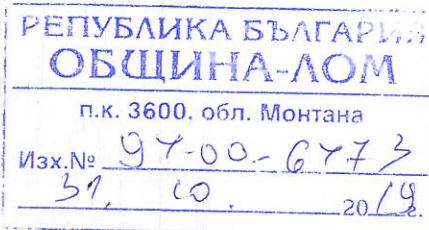 РЕПУБЛИКА БЪЛГАРИЯ
ОБЩИНА-ЛОМ
п.к. 3600. обл. Монтана
Изх.№ 94-00-6473
31. 10. 2019г.